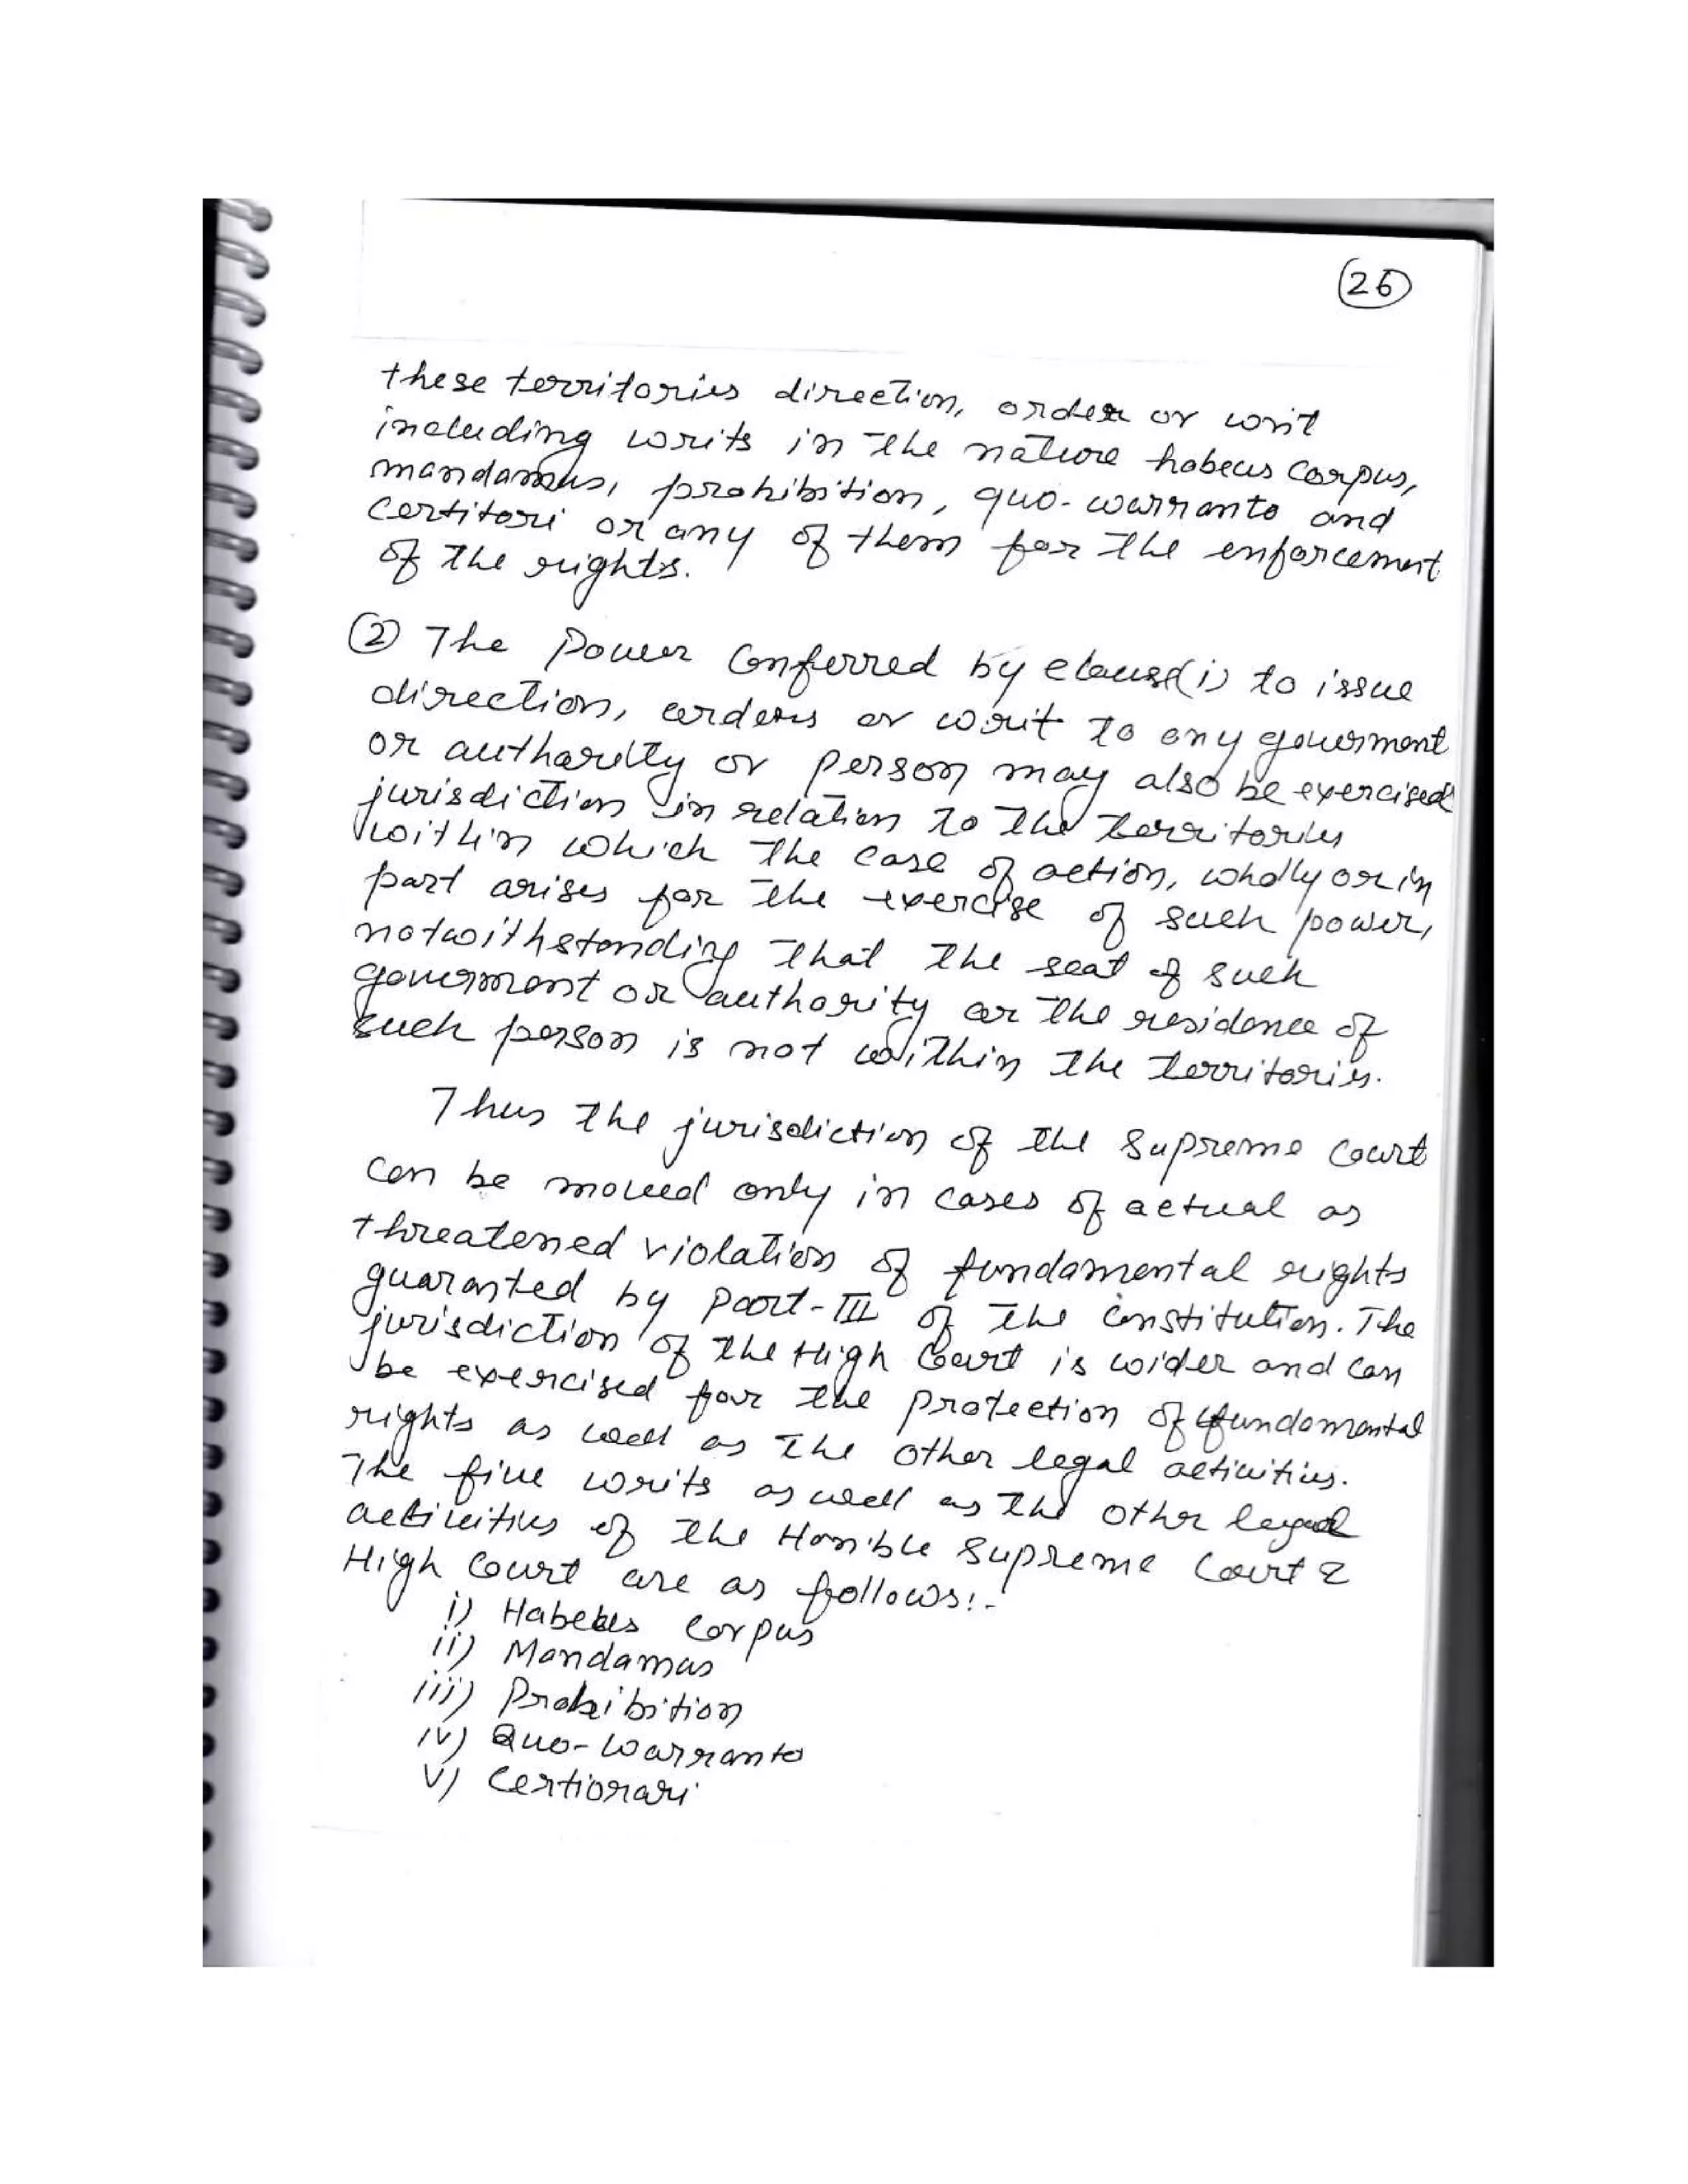 26
these territories direction, order or writ
including writs in the nature habeus corpus,
mandamus, prohibition, quo-warranto and
certitori or any of them for the enforcement
of the rights.
② The Power Conferred by clause(i) to issue
direction, orders or writ to any government
or authority or person may also be exercised
jurisdiction in relation to the territories
within which the case of action, wholly or in
part arises for the exercise of such power,
notwithstanding that the seat of such
government or authority or the residence of
such person is not within the territories.
Thus the jurisdiction of the Supreme Court
can be moved only in cases of actual as
threatened violation of fundamental rights
guaranted by Part-III of the constitution. The
jurisdiction of the High Court is wider and can
be exercised for the protection of fundamental
rights as well as the other legal activities.
The five writs as well as the other legal
activities of the Hon'ble Supreme Court &
High Court are as follows:-
i) Habeus Corpus
ii) Mandamus
iii) Prohibition
iv) Quo-Warranto
v) Certiorari